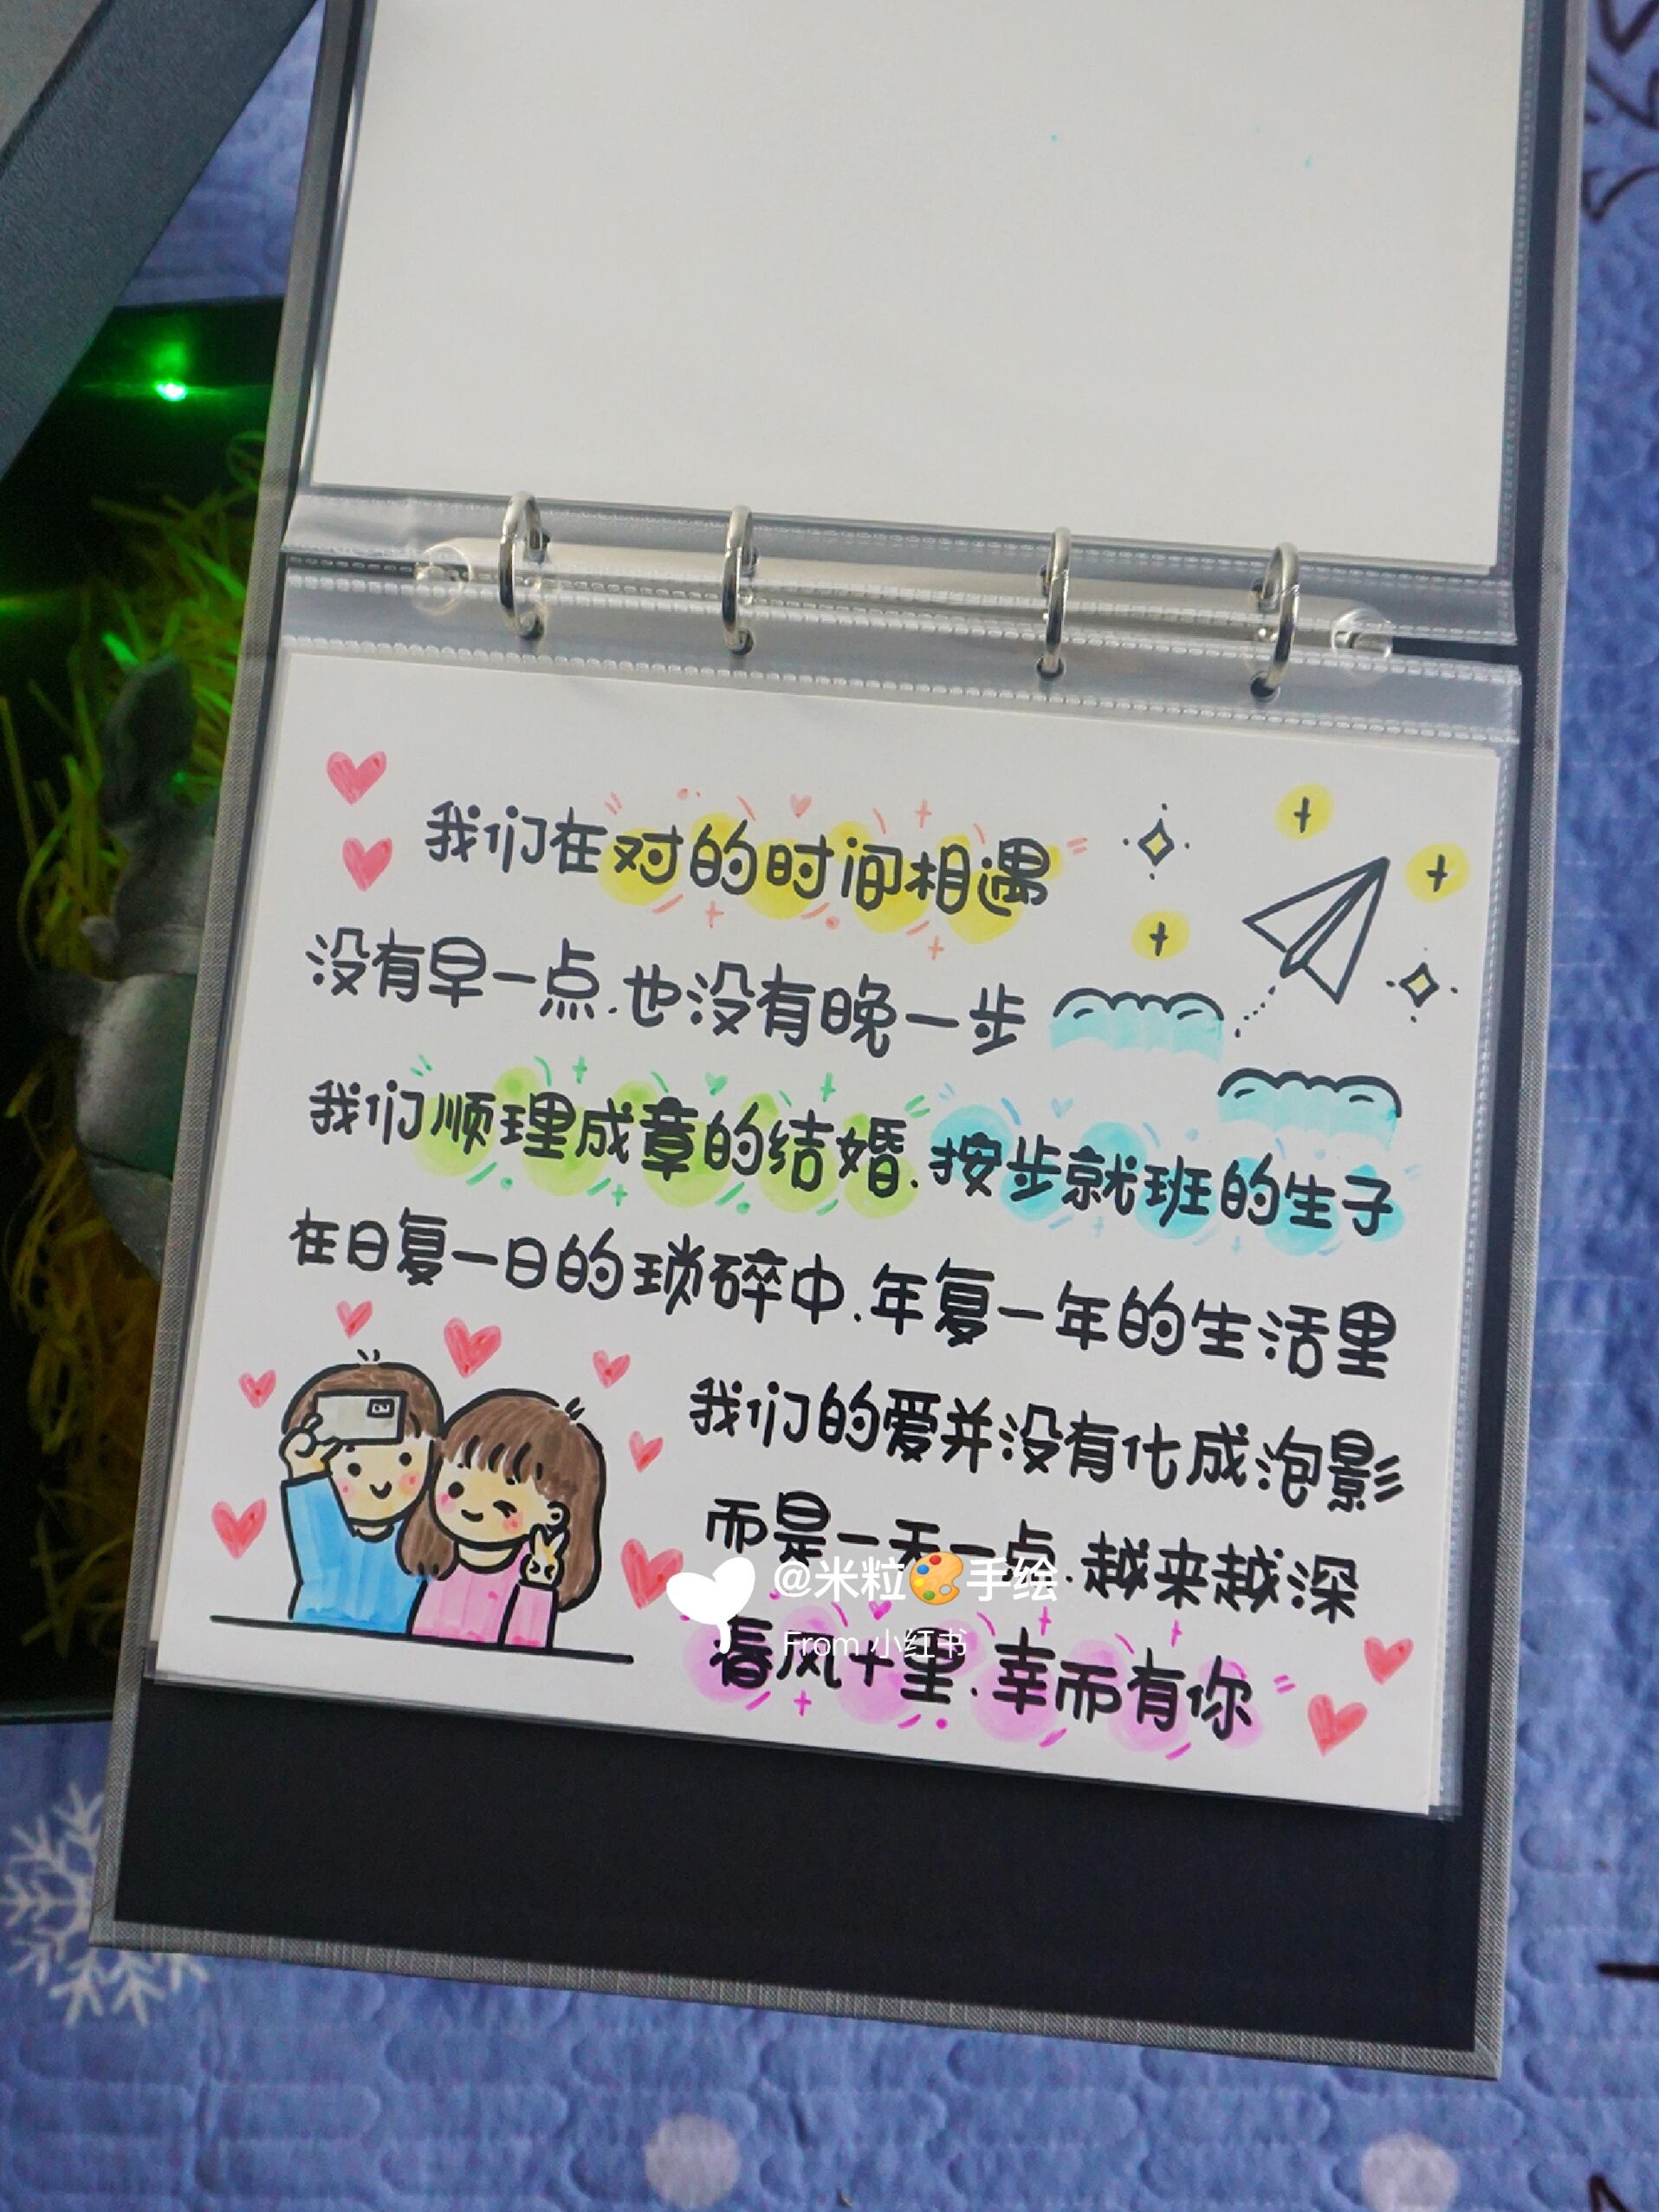 我们在对的时间相遇
没有早一点.也没有晚一步
我们顺理成章的结婚.按步就班的生子
在日复一日的琐碎中.年复一年的生活里
我们的爱并没有化成泡影
而是一天一点.越来越深
@米粒🎨手绘
From 小红书
春风十里.幸而有你